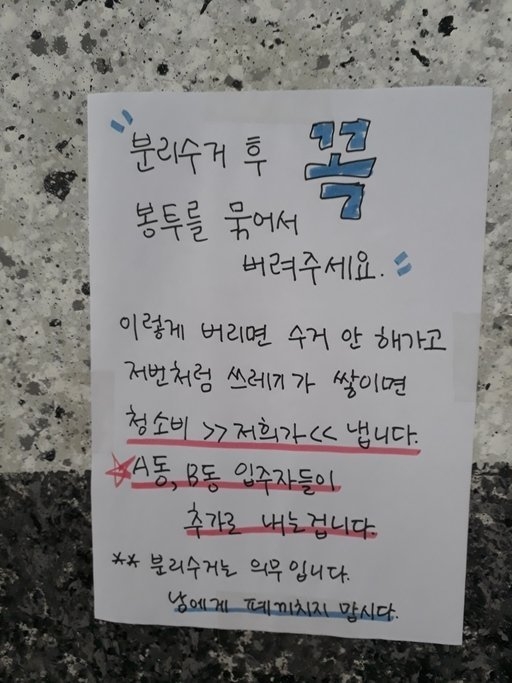 "분리수거 후 꼭
봉투를 묶어서
버려주세요."
이렇게 버리면 수거 안 해가고
저번처럼 쓰레기가 쌓이면
청소비 >>저희가<< 냅니다.
☆A동, B동 입주자들이
추가로 내는겁니다.
** 분리수거는 의무입니다.
남에게 폐끼치지 맙시다.